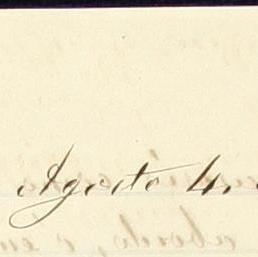 Agosto 4.